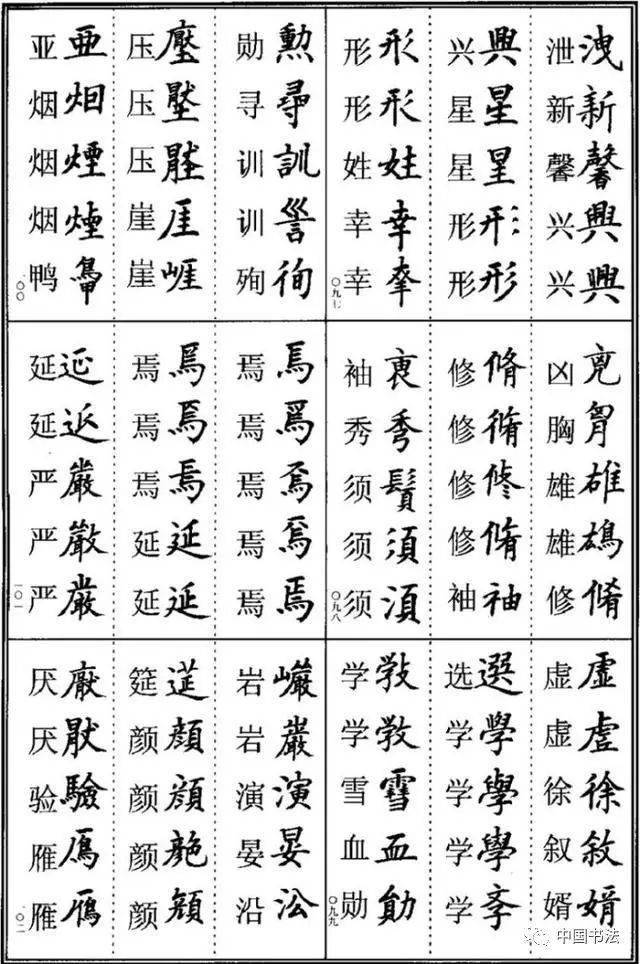 泄洩 新新 馨馨 兴興 兴興
兴興 星星 星星 形形 形形
形形 形形 姓姓 幸幸 幸
〇九七
凶兇 胸胷 雄雄 雄鴆 修脩
修脩 修脩 修修 修脩 袖袖
袖褎 秀秀 须鬚 须須 须湏
〇九八
虚虛 虚虗 徐徐 叙敘 婿婿
选選 学學 学學 学學 学斈
学斆 学教 雪雪 血血 勋勛
〇九九
勋勳 寻尋 训訓 训 殉徇
压壓 压 压 崖厓 崖崕
亚亞 烟烟 烟煙 烟煙 鸭鴨
一〇〇
焉焉 焉焉 焉焉 焉焉 焉焉
焉焉 焉焉 焉焉 延延 延延
延延 延延 严嚴 严嚴 严巖
一〇一
岩巗 岩巖 演演 晏晏 沿沿
筵筵 颜顔 颜顔 颜 颜顔
厌厭 厌猒 验驗 雁鴈 雁鴈
一〇二
中国书法